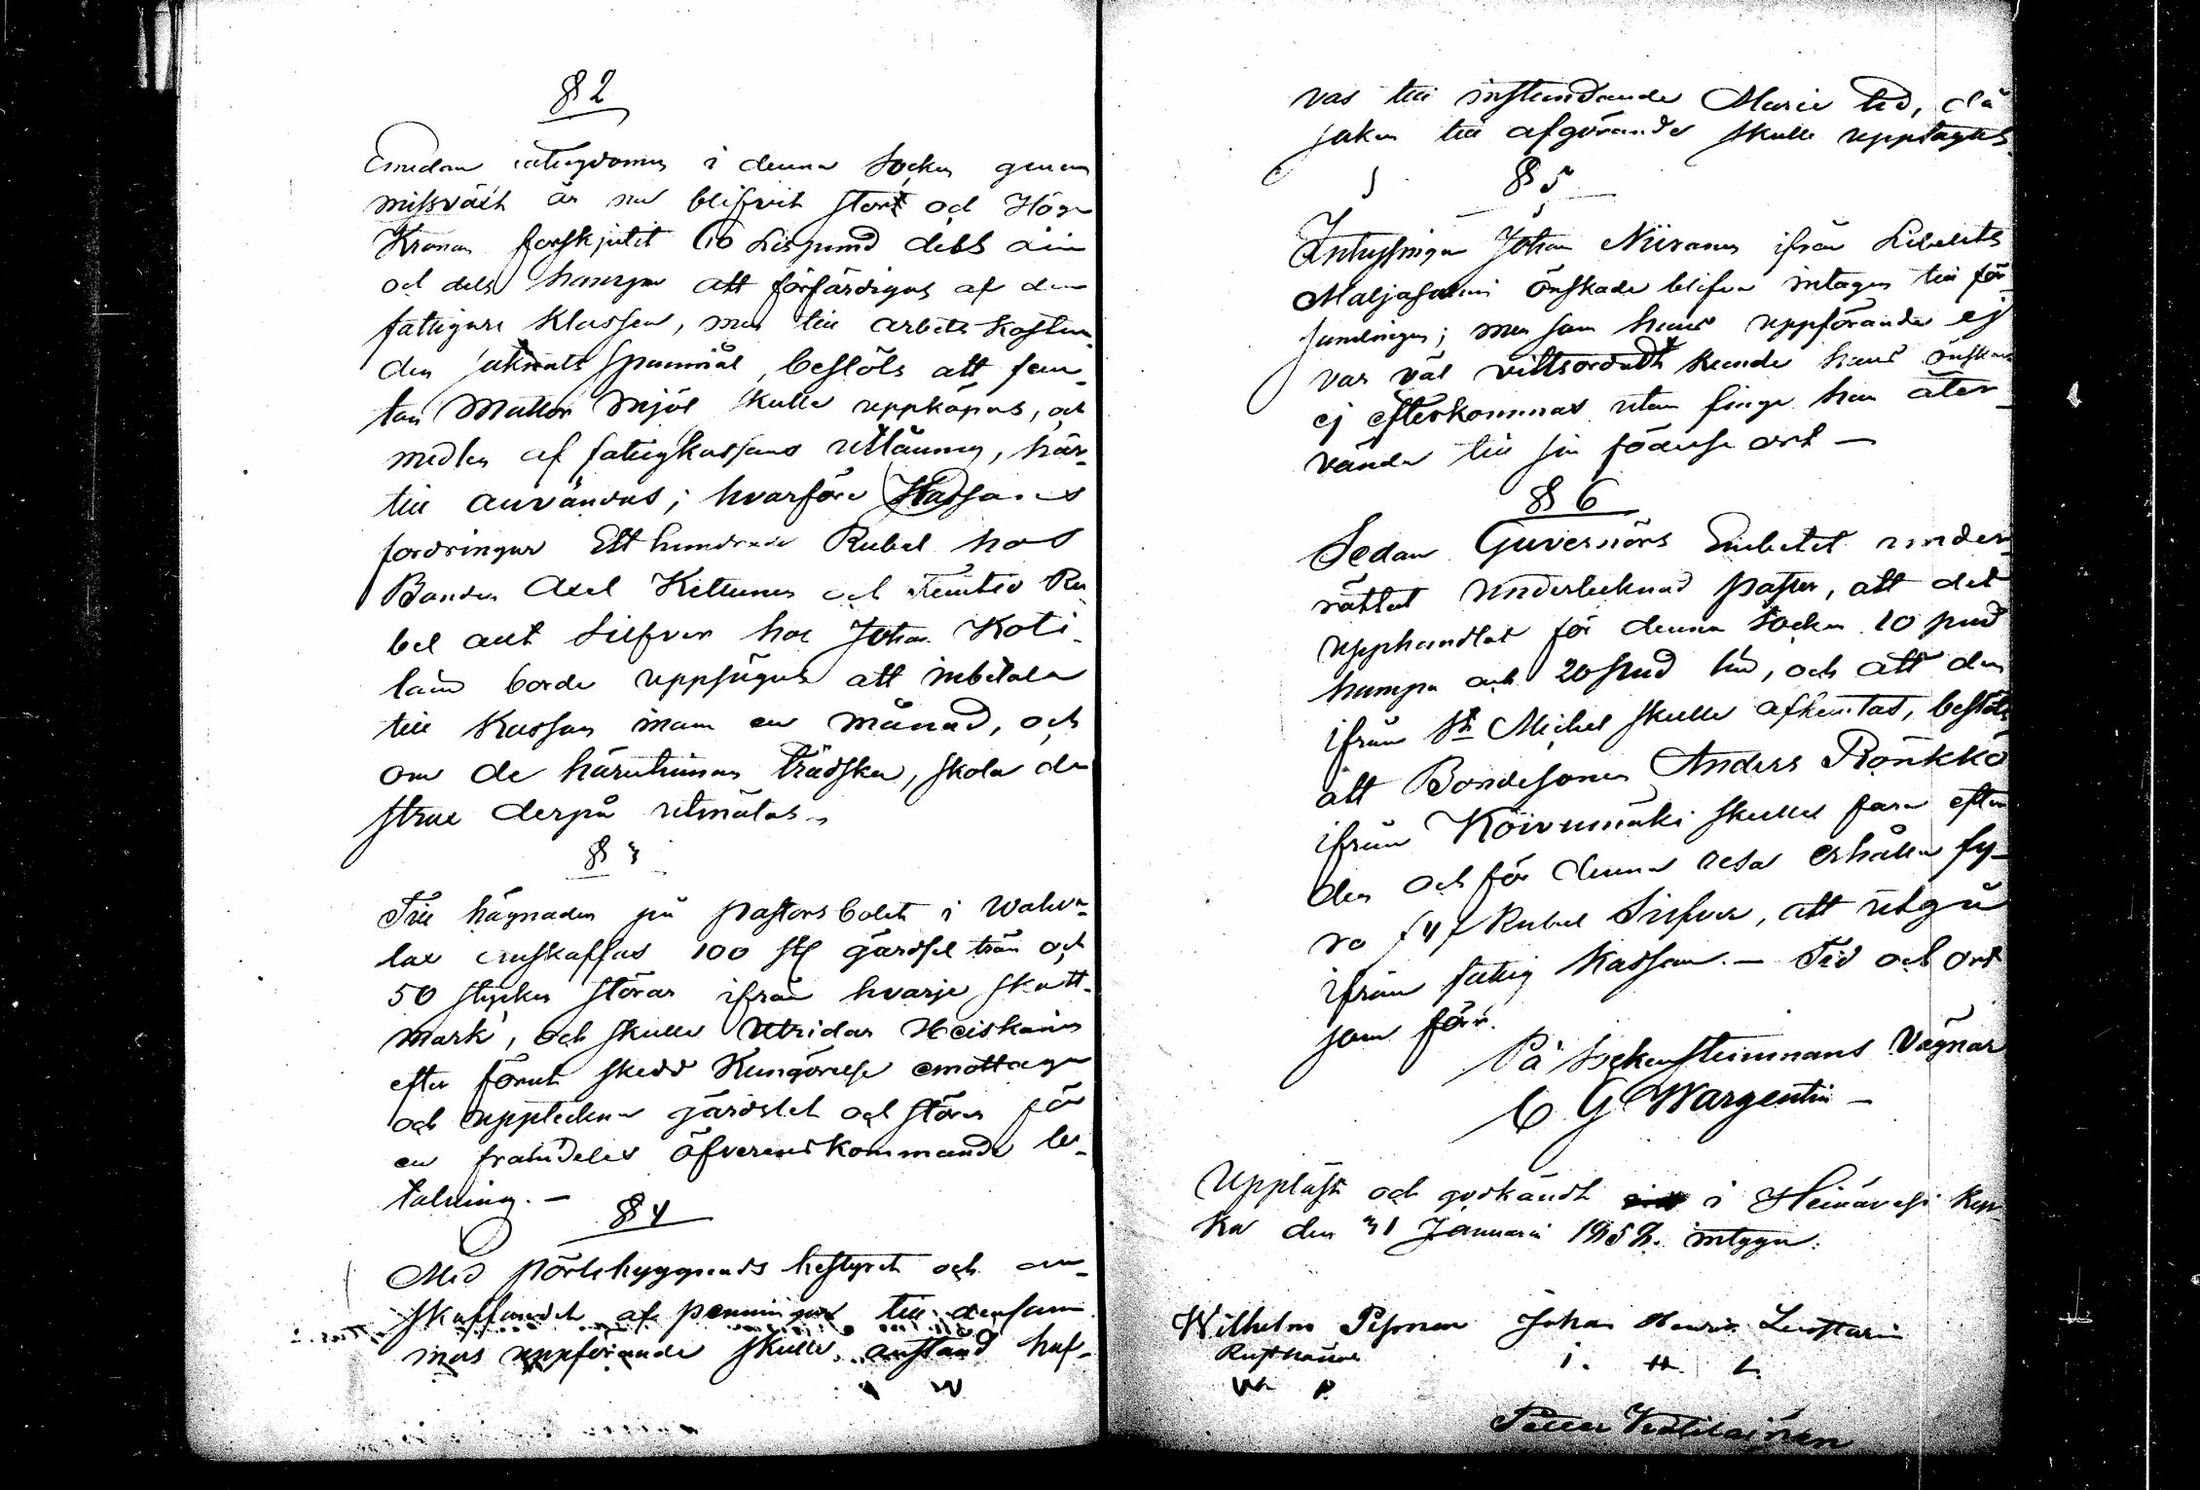 § 2
Emedan fattigdomen i denna Socken genom
missväxt är nu blifvit stor och Höga
Kronan forskjutit 60 Lispund dels Lin
och dels hampa att förfärdigas af den
fattigare Klassen, men till arbets Kostna-
den saknats Spanmål, beslöts att fem-
ton Mattor Mjöl skulle uppköpas, och
medlen af fattigkassans utlåning, här-
till användas; hvarföre Kassans
fordringar Ett hundrade Rubel hos
Bonden Axel Kettunen och Femtio Ru-
bel allt Silfver hos Johan Koti-
lain borde uppsägas att inbetala
till Kassan inom en Månad, och
om de häruti finnas trädska, skola de
strax derpå utmätas.
§ 3
Till hägnaden på Pastors bolet i Wahva-
lax anskaffas 100 st gärdsel trän och
50 stycken störar ifrån hvarje skatt-
mark, och skulle Utridar Heiskainen
efter förut skedd Kungörelse emottaga
och uppteckna gärdslet och störar för
en framdeles öfverenskommande be-
talning. —
§ 4
Med Pörtebyggnads bestyret och an-
skaffandet af penningar till densam-
mas uppförande skulle anstånd haf-
W
vas till instundande Marie tid, då
saken till afgörande skulle upptagas.
§ 5
Inhyssingen Johan Niiranen ifrån Libelits
Maljasalmi önskade blifva intagen till för-
samlingen; men som hans uppförande ej
var väl vittsordadt kunde hans önskan
ej efterkommas utan finge han åter-
vända till sin födelse ort —
§ 6
Sedan Guvernörs Embetet under-
rättat Undertecknad Pastor, att det
upphandlat för denna Socken 10 pud
hampa och 20 pud lin, och att den
ifrån St Michel skulle afhemtas, beslöts
att Bondesonen Anders Rönkkö
ifrån Koivumäki skulle fara efter
den och för denna resa erhålla fy-
ra /4/ Rubel Silfver, att utgå
ifrån fattig Kassan. — Tid och ort
som förr.
På Sockenstemmans Vägnar
C G Wargentin —
Uppläst och godkändt i Heinävesi Kyr-
ka den 31 Januarii 1858. intyga:
Wilhelm Pesonen Johan Henric Leustarin
Rusthållare I. H. L.
W. P.
Petter Kotilainen